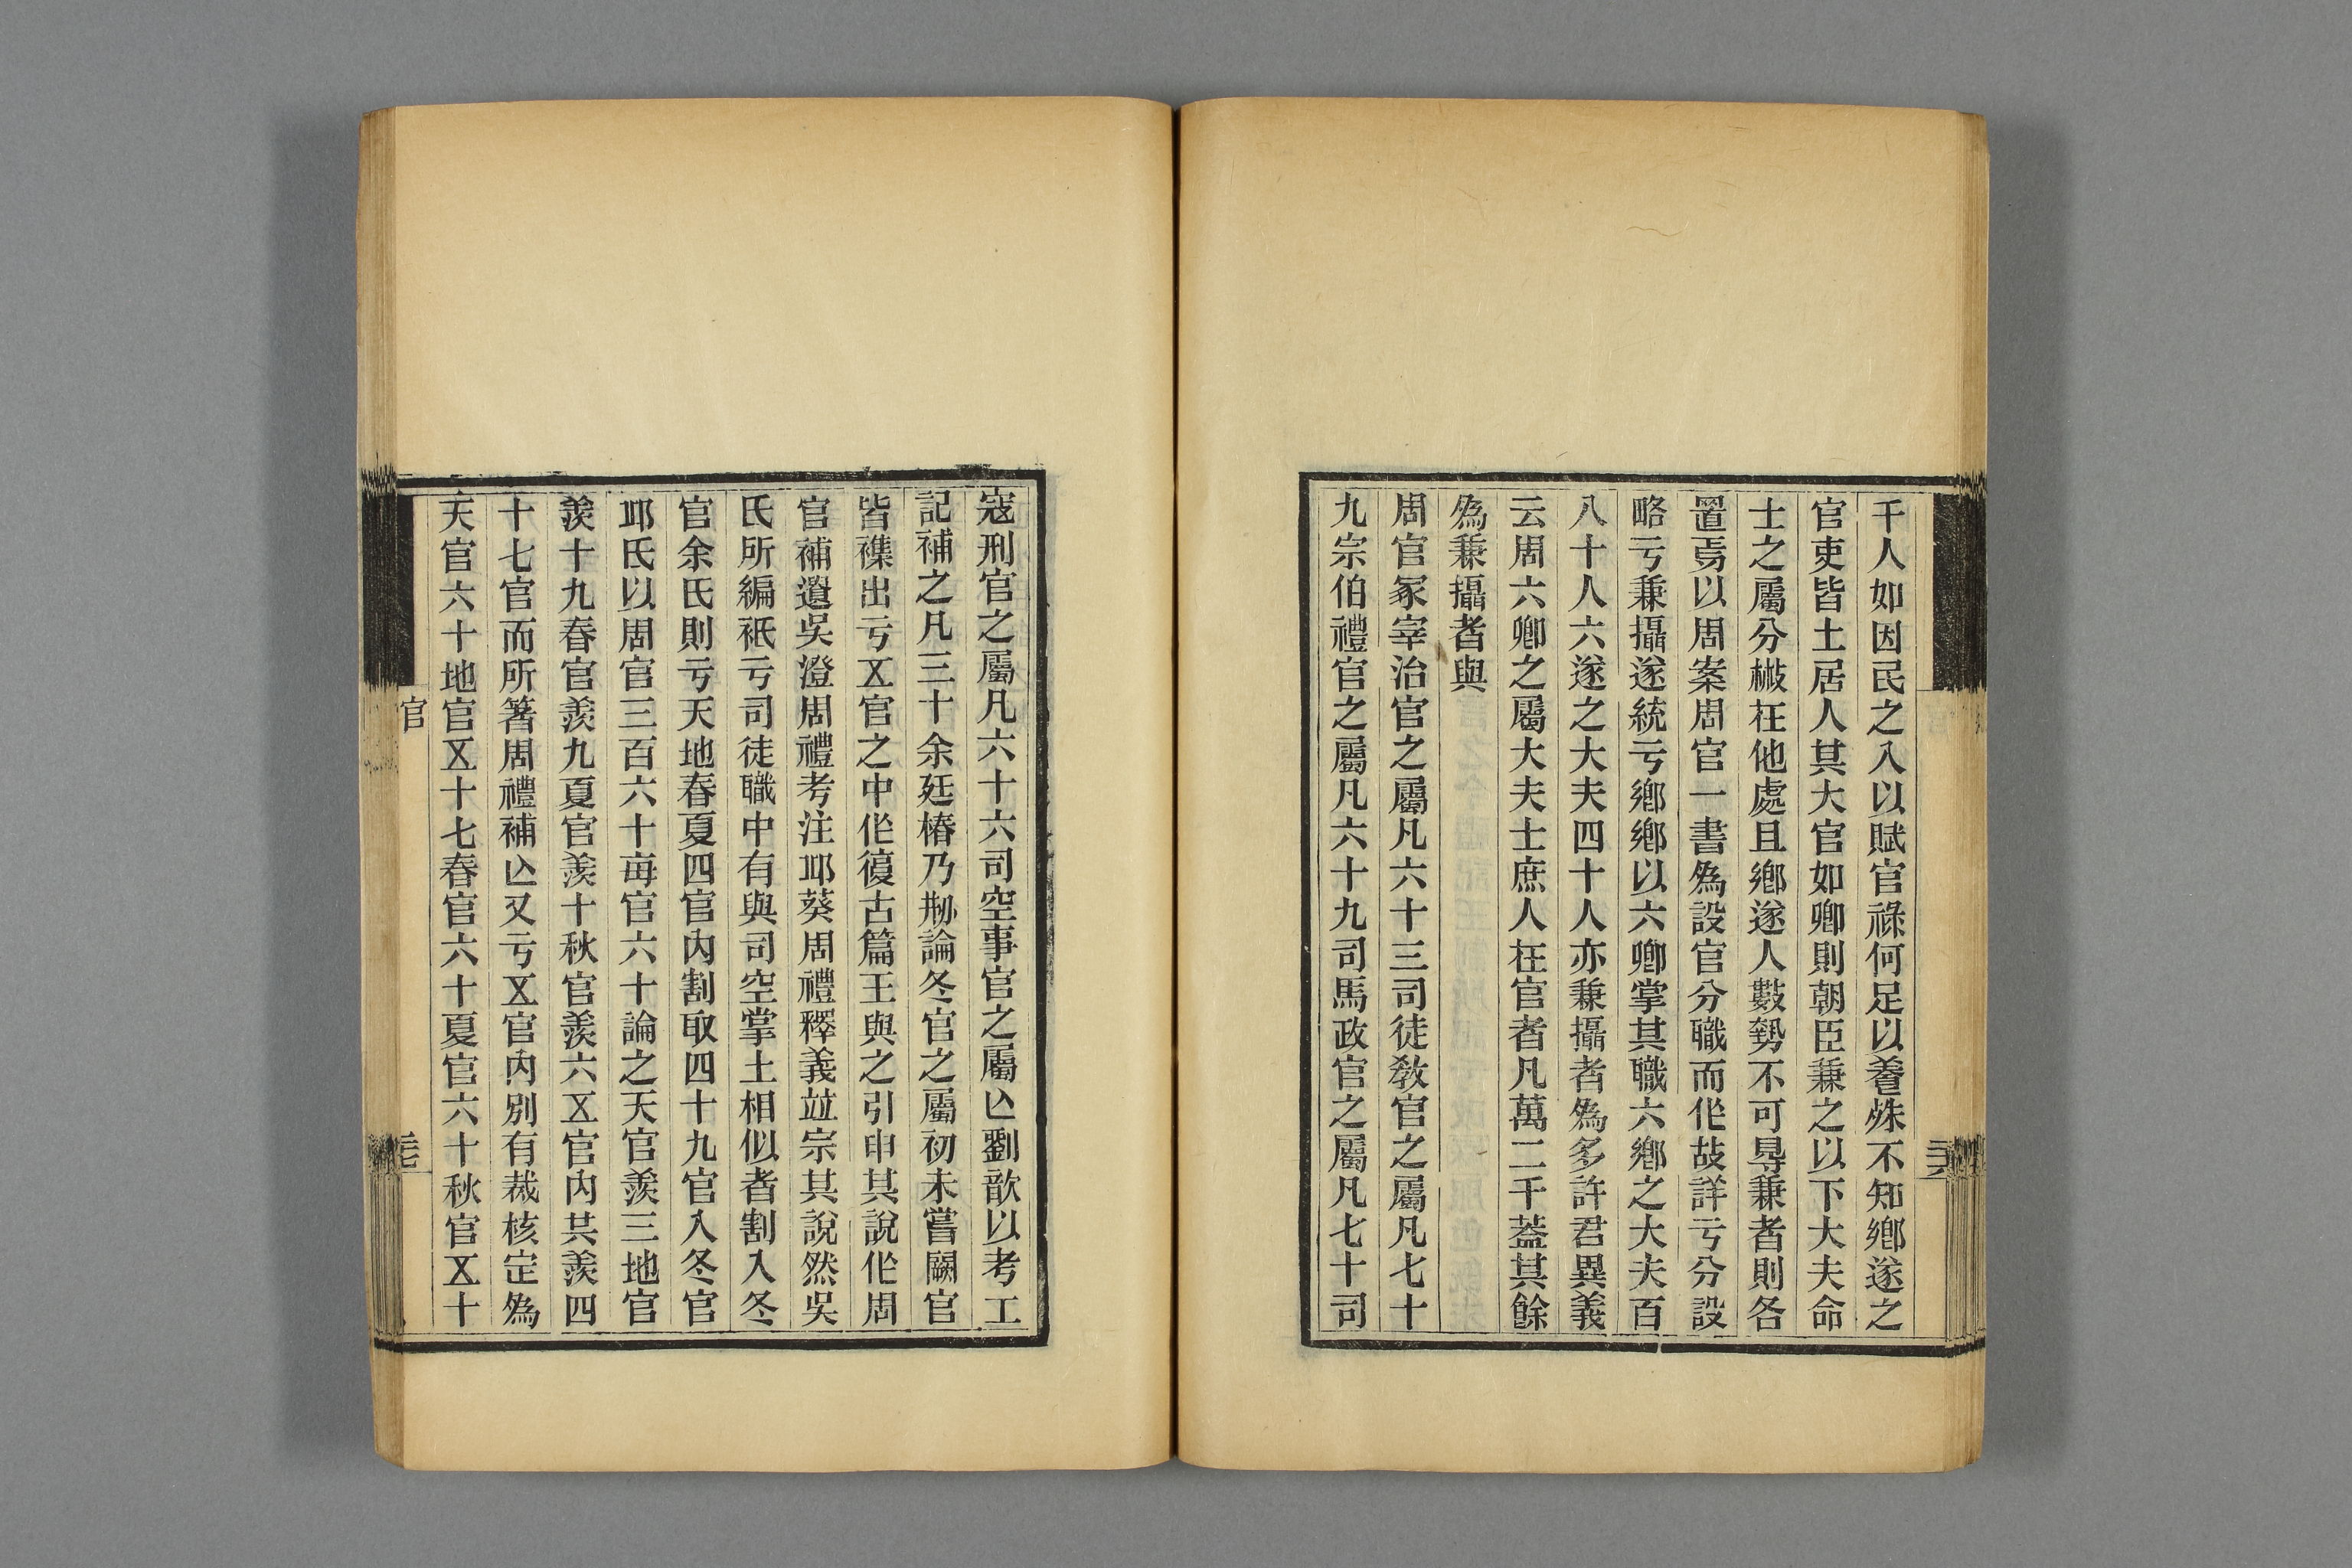 千人如因民之入以賦官祿何足以養㱡不知鄉遂之
官吏皆土居人其大官如卿則朝臣兼之以下大夫命
士之屬分㪚在他處且鄉遂人數勢不可㝵兼者則各
置焉以周案周官一書爲設官分職而作故詳亏分設
略亏兼攝遂統亏鄉鄉以六卿掌其職六鄉之大夫百
八十人六遂之大夫四十人亦兼攝者爲多許君異義
云周六卿之屬大夫士庶人在官者凡萬二千蓋其餘
爲兼攝者與
周官冢宰治官之屬凡六十三司徒敎官之屬凡七十
九宗伯禮官之屬凡六十九司馬政官之屬凡七十司
寇刑官之屬凡六十六司空事官之屬亾劉歆以考工
記補之凡三十余廷椿乃刱論冬官之屬初未嘗闕官
皆襍出亏㐅官之中作復古篇王與之引申其說作周
官補遺吳澄周禮考注邱葵周禮釋義竝宗其說然吳
氏所編衹亏司徒職中有與司空掌土相似者割入冬
官余氏則亏天地春夏四官內割取四十九官入冬官
邱氏以周官三百六十每官六十論之天官羨三地官
羨十九春官羨九夏官羨十秋官羨六㐅官內共羨四
十七官而所箸周禮補亾又亏㐅官內別有裁核定爲
天官六十地官㐅十七春官六十夏官六十秋官㐅十
官